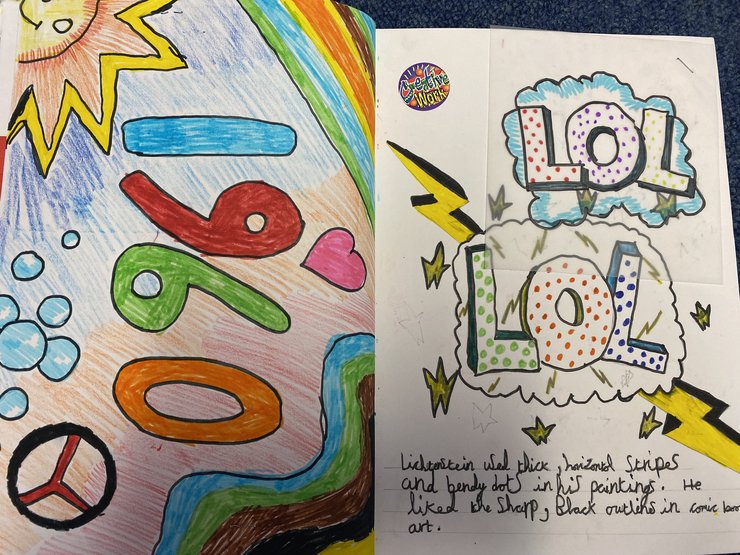 1960
Creative
Work
LOL
LOL
Lichtenstein used thick, horizontal stripes
and bendy dots in his paintings. He
liked the sharp, Black outlens in comic boo
art.